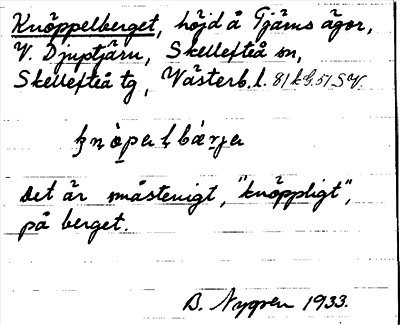 Knöppelberget, höjd å Tjärns ägor,
V. Djuptjärn, Skellefteå sn,
Skellefteå tg, Västerb. l.
Det är småstenigt, "knöppligt",
på berget.
B. Nygren 1933.